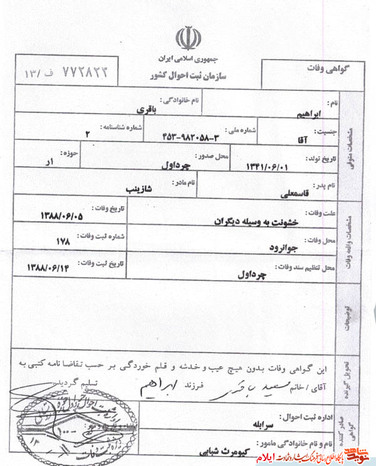 جمهوری اسلامی ایران
سازمان ثبت احوال کشور
گواهی وفات
۷۷۲۸۲۲ ف/۱۳
مشخصات متوفی
نام : ابراهیم
نام خانوادگی : باقری
جنسیت : آقا
شماره ملی : ۴۵۳-۹۸۲۰۵۸-۳
شماره شناسنامه : ۲
تاریخ تولد : ۱۳۴۱/۰۶/۰۱
محل صدور : چرداول
حوزه : ۱ر
نام پدر : قاسمعلی
نام مادر : شازینب
مشخصات واقعه وفات
علت وفات : خشونت به وسیله دیگران
تاریخ وفات : ۱۳۸۸/۰۶/۰۵
محل وفات : جوانرود
شماره ثبت وفات : ۱۷۸
محل تنظیم سند وفات : چرداول
تاریخ ثبت وفات : ۱۳۸۸/۰۶/۱۴
توضیحات
تحویل گیرنده
این گواهی وفات بدون هیچ عیب و خدشه و قلم خوردگی بر حسب تقاضا نامه کتبی به
آقای/خانم سعید باقری فرزند ابراهیم تسلیم گردید.
صادر کننده گواهی
اداره ثبت احوال : سرابله
نام و نام خانوادگی مامور : کیومرث شبابی